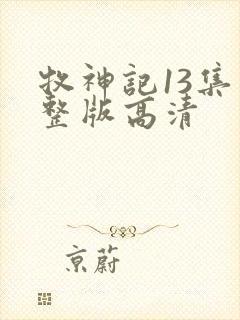 牧神記13集
整版高清
京蔚